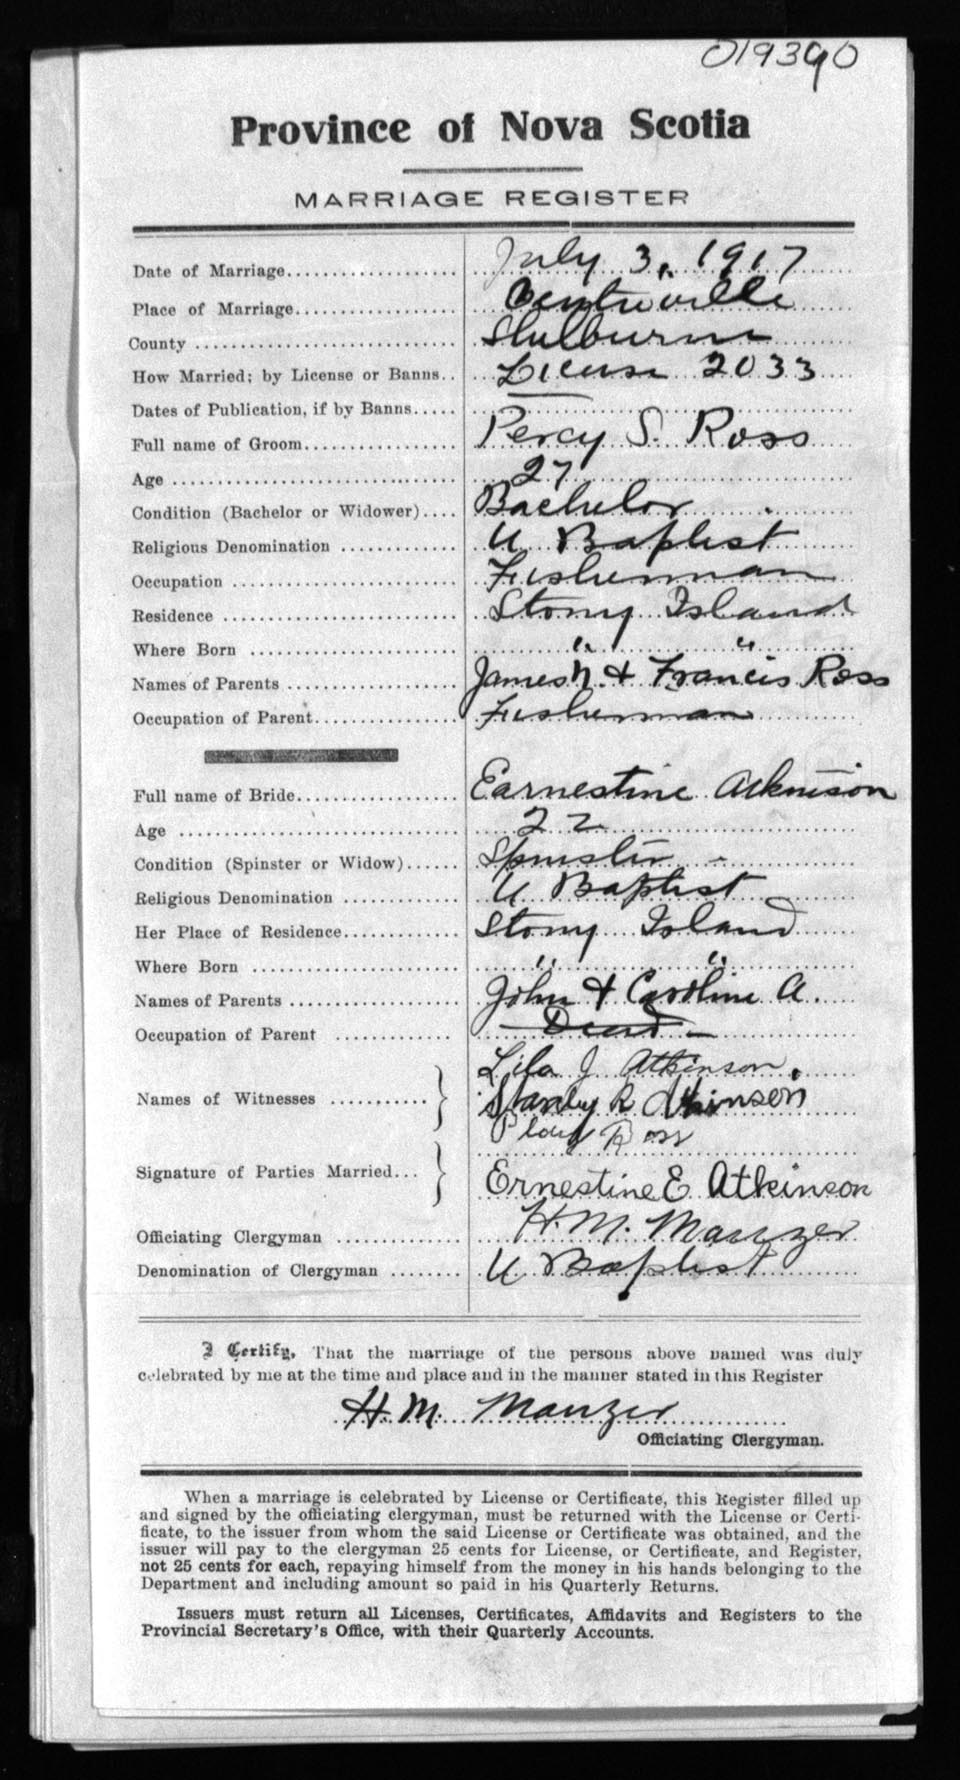 019390
Province of Nova Scotia
MARRIAGE REGISTER
Date of Marriage.................... July 3, 1917
Place of Marriage................... Centreville
County .............................. Shelburne
How Married; by License or Banns.. License 2033
Dates of Publication, if by Banns.....
Full name of Groom.................. Percy S. Ross
Age ................................. 27
Condition (Bachelor or Widower).... Bachelor
Religious Denomination ............. U Baptist
Occupation .......................... Fisherman
Residence ........................... Stony Island
Where Born ........................ " "
Names of Parents .................... James N. & Francis Ross
Occupation of Parent................. Fisherman
Full name of Bride................... Earnestine Atkinson
Age ................................. 22
Condition (Spinster or Widow)...... Spinster
Religious Denomination ............. U Baptist
Her Place of Residence............. Stony Island
Where Born ........................ " "
Names of Parents .................... John & Caroline A.
Occupation of Parent ............. Dead
Lila J Atkinson.
Names of Witnesses ........... } Stanley R Atkinson
Percy Ross
Signature of Parties Married... } Ernestine E Atkinson
Officiating Clergyman ............. H. M. Manzer
Denomination of Clergyman ........ U Baptist
I Certify, That the marriage of the persons above named was duly
celebrated by me at the time and place and in the manner stated in this Register
H. M. Manzer
Officiating Clergyman.
When a marriage is celebrated by License or Certificate, this Register filled up
and signed by the officiating clergyman, must be returned with the License or Certi-
ficate, to the issuer from whom the said License or Certificate was obtained, and the
issuer will pay to the clergyman 25 cents for License, or Certificate, and Register,
not 25 cents for each, repaying himself from the money in his hands belonging to the
Department and including amount so paid in his Quarterly Returns.
Issuers must return all Licenses, Certificates, Affidavits and Registers to the
Provincial Secretary's Office, with their Quarterly Accounts.